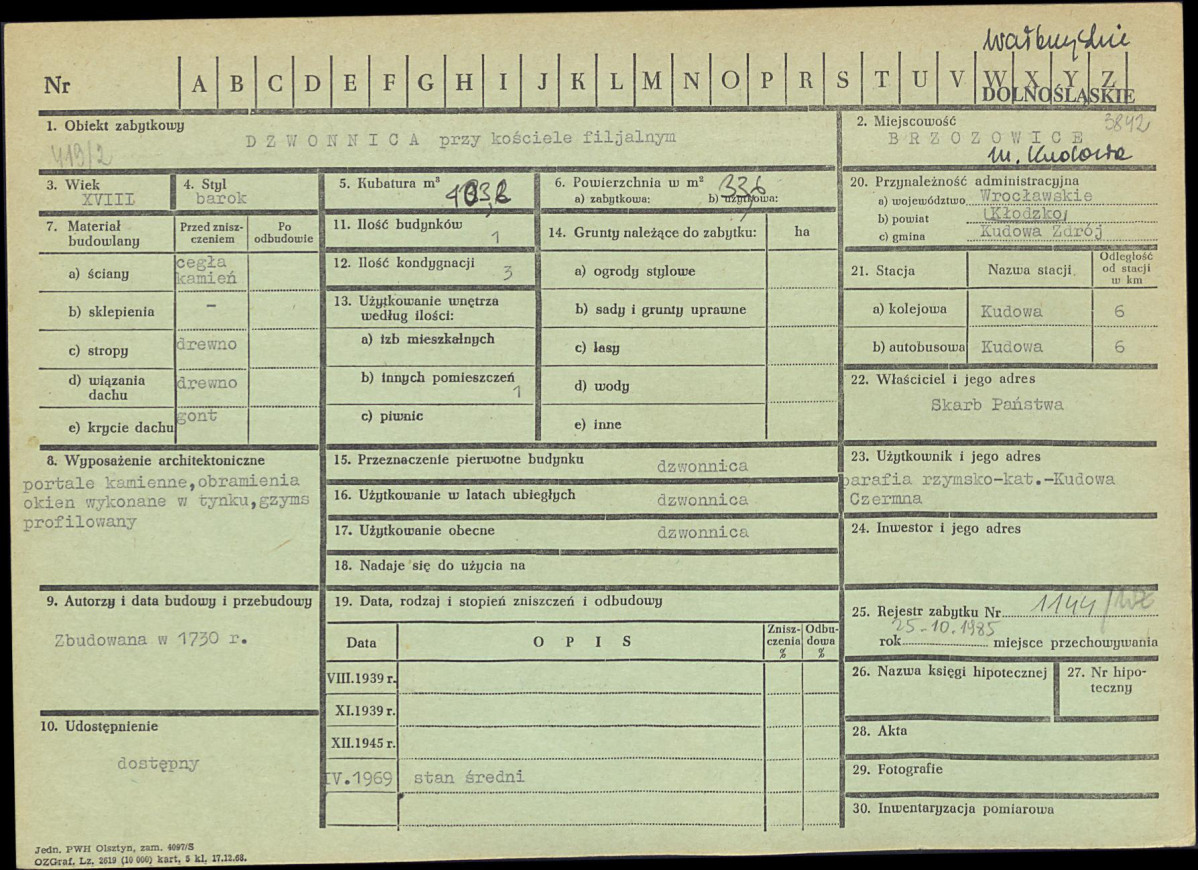 Wałbrzyskie
Nr A B C D E F G H I J K L M N O P R S T U V W X Y Z
DOLNOŚLĄSKIE
1. Obiekt zabytkowy
DZWONNICA przy kościele filjalnym
419/2
2. Miejscowość 3842
BRZOZOWICE
m. Kudowa
3. Wiek
XVIII
4. Styl
barok
5. Kubatura m³
6. Powierzchnia w m² 336
a) zabytkowa: b) użytkowa:
7. Materiał budowlany
Przed zniszczeniem
Po odbudowie
a) ściany cegła kamień
b) sklepienia –
c) stropy drewno
d) wiązania dachu drewno
e) krycie dachu gont
8. Wyposażenie architektoniczne
portale kamienne, obramienia
okien wykonane w tynku, gzyms
profilowany
9. Autorzy i data budowy i przebudowy
Zbudowana w 1730 r.
10. Udostępnienie
dostępny
11. Ilość budynków
1
12. Ilość kondygnacji
3
13. Użytkowanie wnętrza
według ilości:
a) izb mieszkalnych
b) innych pomieszczeń
1
c) piwnic
14. Grunty należące do zabytku: ha
a) ogrody stylowe
b) sady i grunty uprawne
c) lasy
d) wody
e) inne
15. Przeznaczenie pierwotne budynku dzwonnica
16. Użytkowanie w latach ubiegłych dzwonnica
17. Użytkowanie obecne dzwonnica
18. Nadaje się do użycia na
19. Data, rodzaj i stopień zniszczeń i odbudowy
Data OPIS Zniszczenia % Odbudowa %
VIII.1939 r.
XI.1939 r.
XII.1945 r.
IV.1969 stan średni
20. Przynależność administracyjna
a) województwo Wrocławskie
b) powiat Kłodzko
c) gmina Kudowa Zdrój
21. Stacja Nazwa stacji Odległość od stacji w km
a) kolejowa Kudowa 6
b) autobusowa Kudowa 6
22. Właściciel i jego adres
Skarb Państwa
23. Użytkownik i jego adres
parafia rzymsko-kat.-Kudowa
Czermna
24. Inwestor i jego adres
25. Rejestr zabytku Nr 1144/WŁ
25-10.1985
rok miejsce przechowywania
26. Nazwa księgi hipotecznej
27. Nr hipoteczny
28. Akta
29. Fotografie
30. Inwentaryzacja pomiarowa
Jedn. PWH Olsztyn, zam. 4097/S
OZGraf. Lz. 2619 (10 000) kart, 5 kl, 17.12.68.